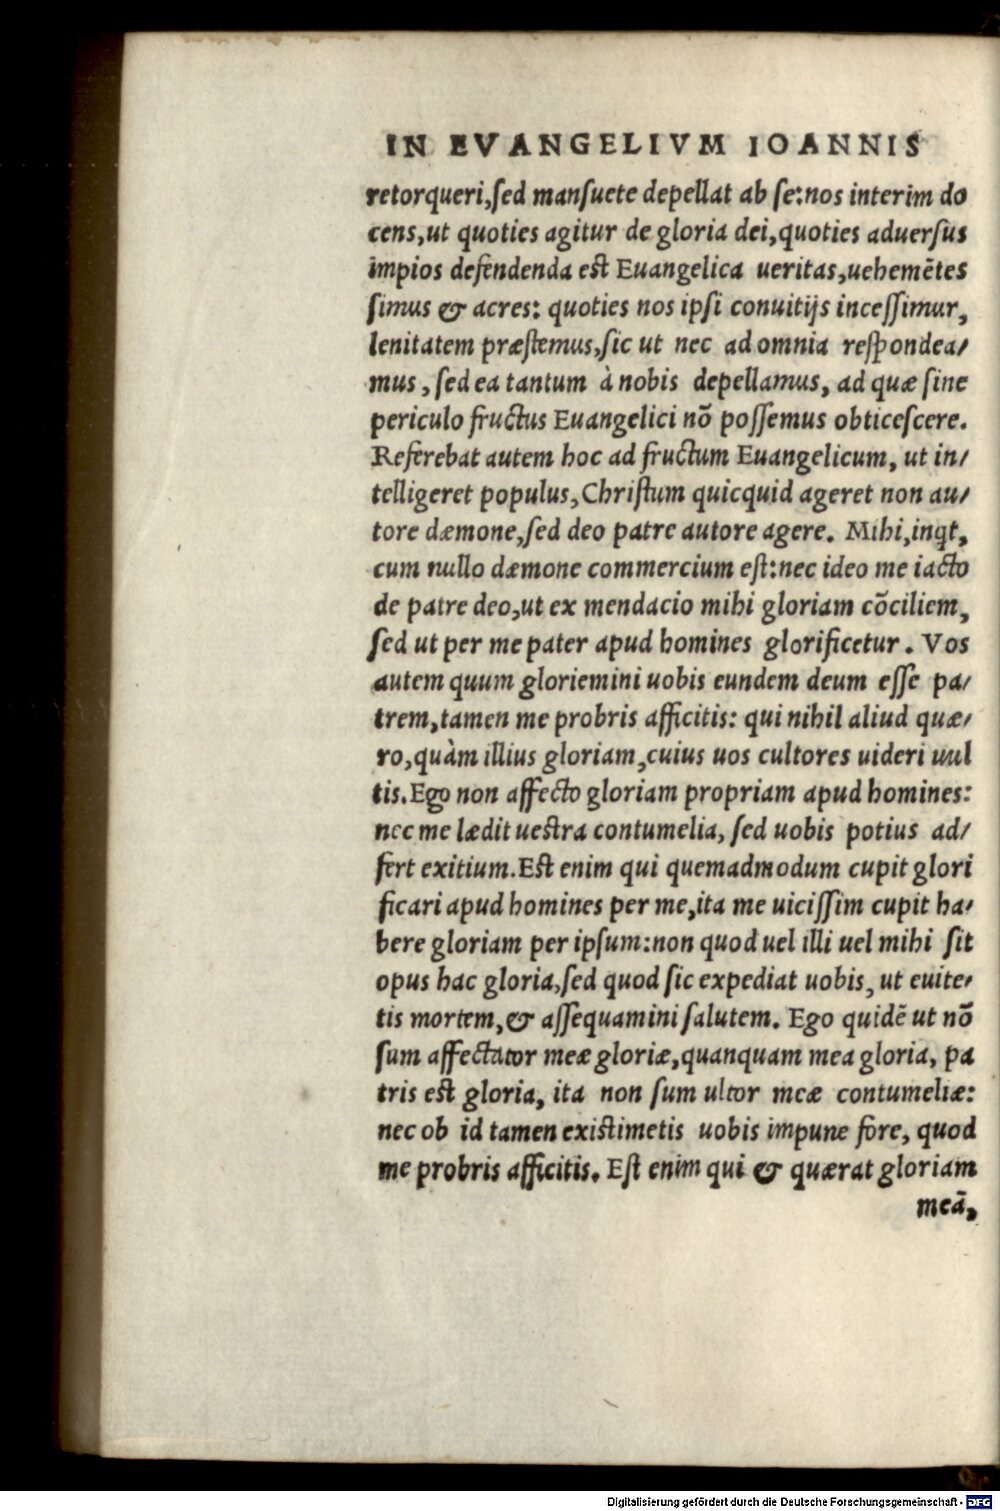 IN EVANGELIVM IOANNIS
retorqueri,ſed manſuete depellat ab ſe:nos interim do
cens,ut quoties agitur de gloria dei,quoties aduerſus
impios defendenda est Euangelica ueritas,uehemētes
ſimus & acres: quoties nos ipſi conuitijs inceſſimur,
lenitatem præstemus,ſic ut nec ad omnia reſpondea/
mus, ſed ea tantum à nobis depellamus, ad quæ ſine
periculo fructus Euangelici nō poſſemus obticeſcere.
Referebat autem hoc ad fructum Euangelicum, ut in/
telligeret populus, Chriſtum quicquid ageret non au/
tore dæmone,ſed deo patre autore agere. Mihi,inꝗt,
cum nullo dæmone commercium eſt:nec ideo me iacto
de patre deo,ut ex mendacio mihi gloriam cōciliem,
ſed ut per me pater apud homines glorificetur. Vos
autem quum gloriemini uobis eundem deum eſſe pa/
trem,tamen me probris afficitis: qui nihil aliud quæ/
ro,quàm illius gloriam,cuius uos cultores uideri uul
tis.Ego non affecto gloriam propriam apud homines:
nec me lædit uestra contumelia, ſed uobis potius ad/
fert exitium.Est enim qui quemadmodum cupit glori
ficari apud homines per me,ita me uiciſſim cupit ha/
bere gloriam per ipſum:non quod uel illi uel mihi ſit
opus hac gloria,ſed quod ſic expediat uobis, ut euite/
tis mortem,& aſſequamini ſalutem. Ego quidē ut nō
ſum affectator meæ gloriæ,quanquam mea gloria, pa
tris est gloria, ita non ſum ultor meæ contumeliæ:
nec ob id tamen existimetis uobis impune fore, quod
me probris afficitis. Eſt enim qui & quærat gloriam
meā,
Digitalisierung gefördert durch die Deutsche Forschungsgemeinschaft - DFG